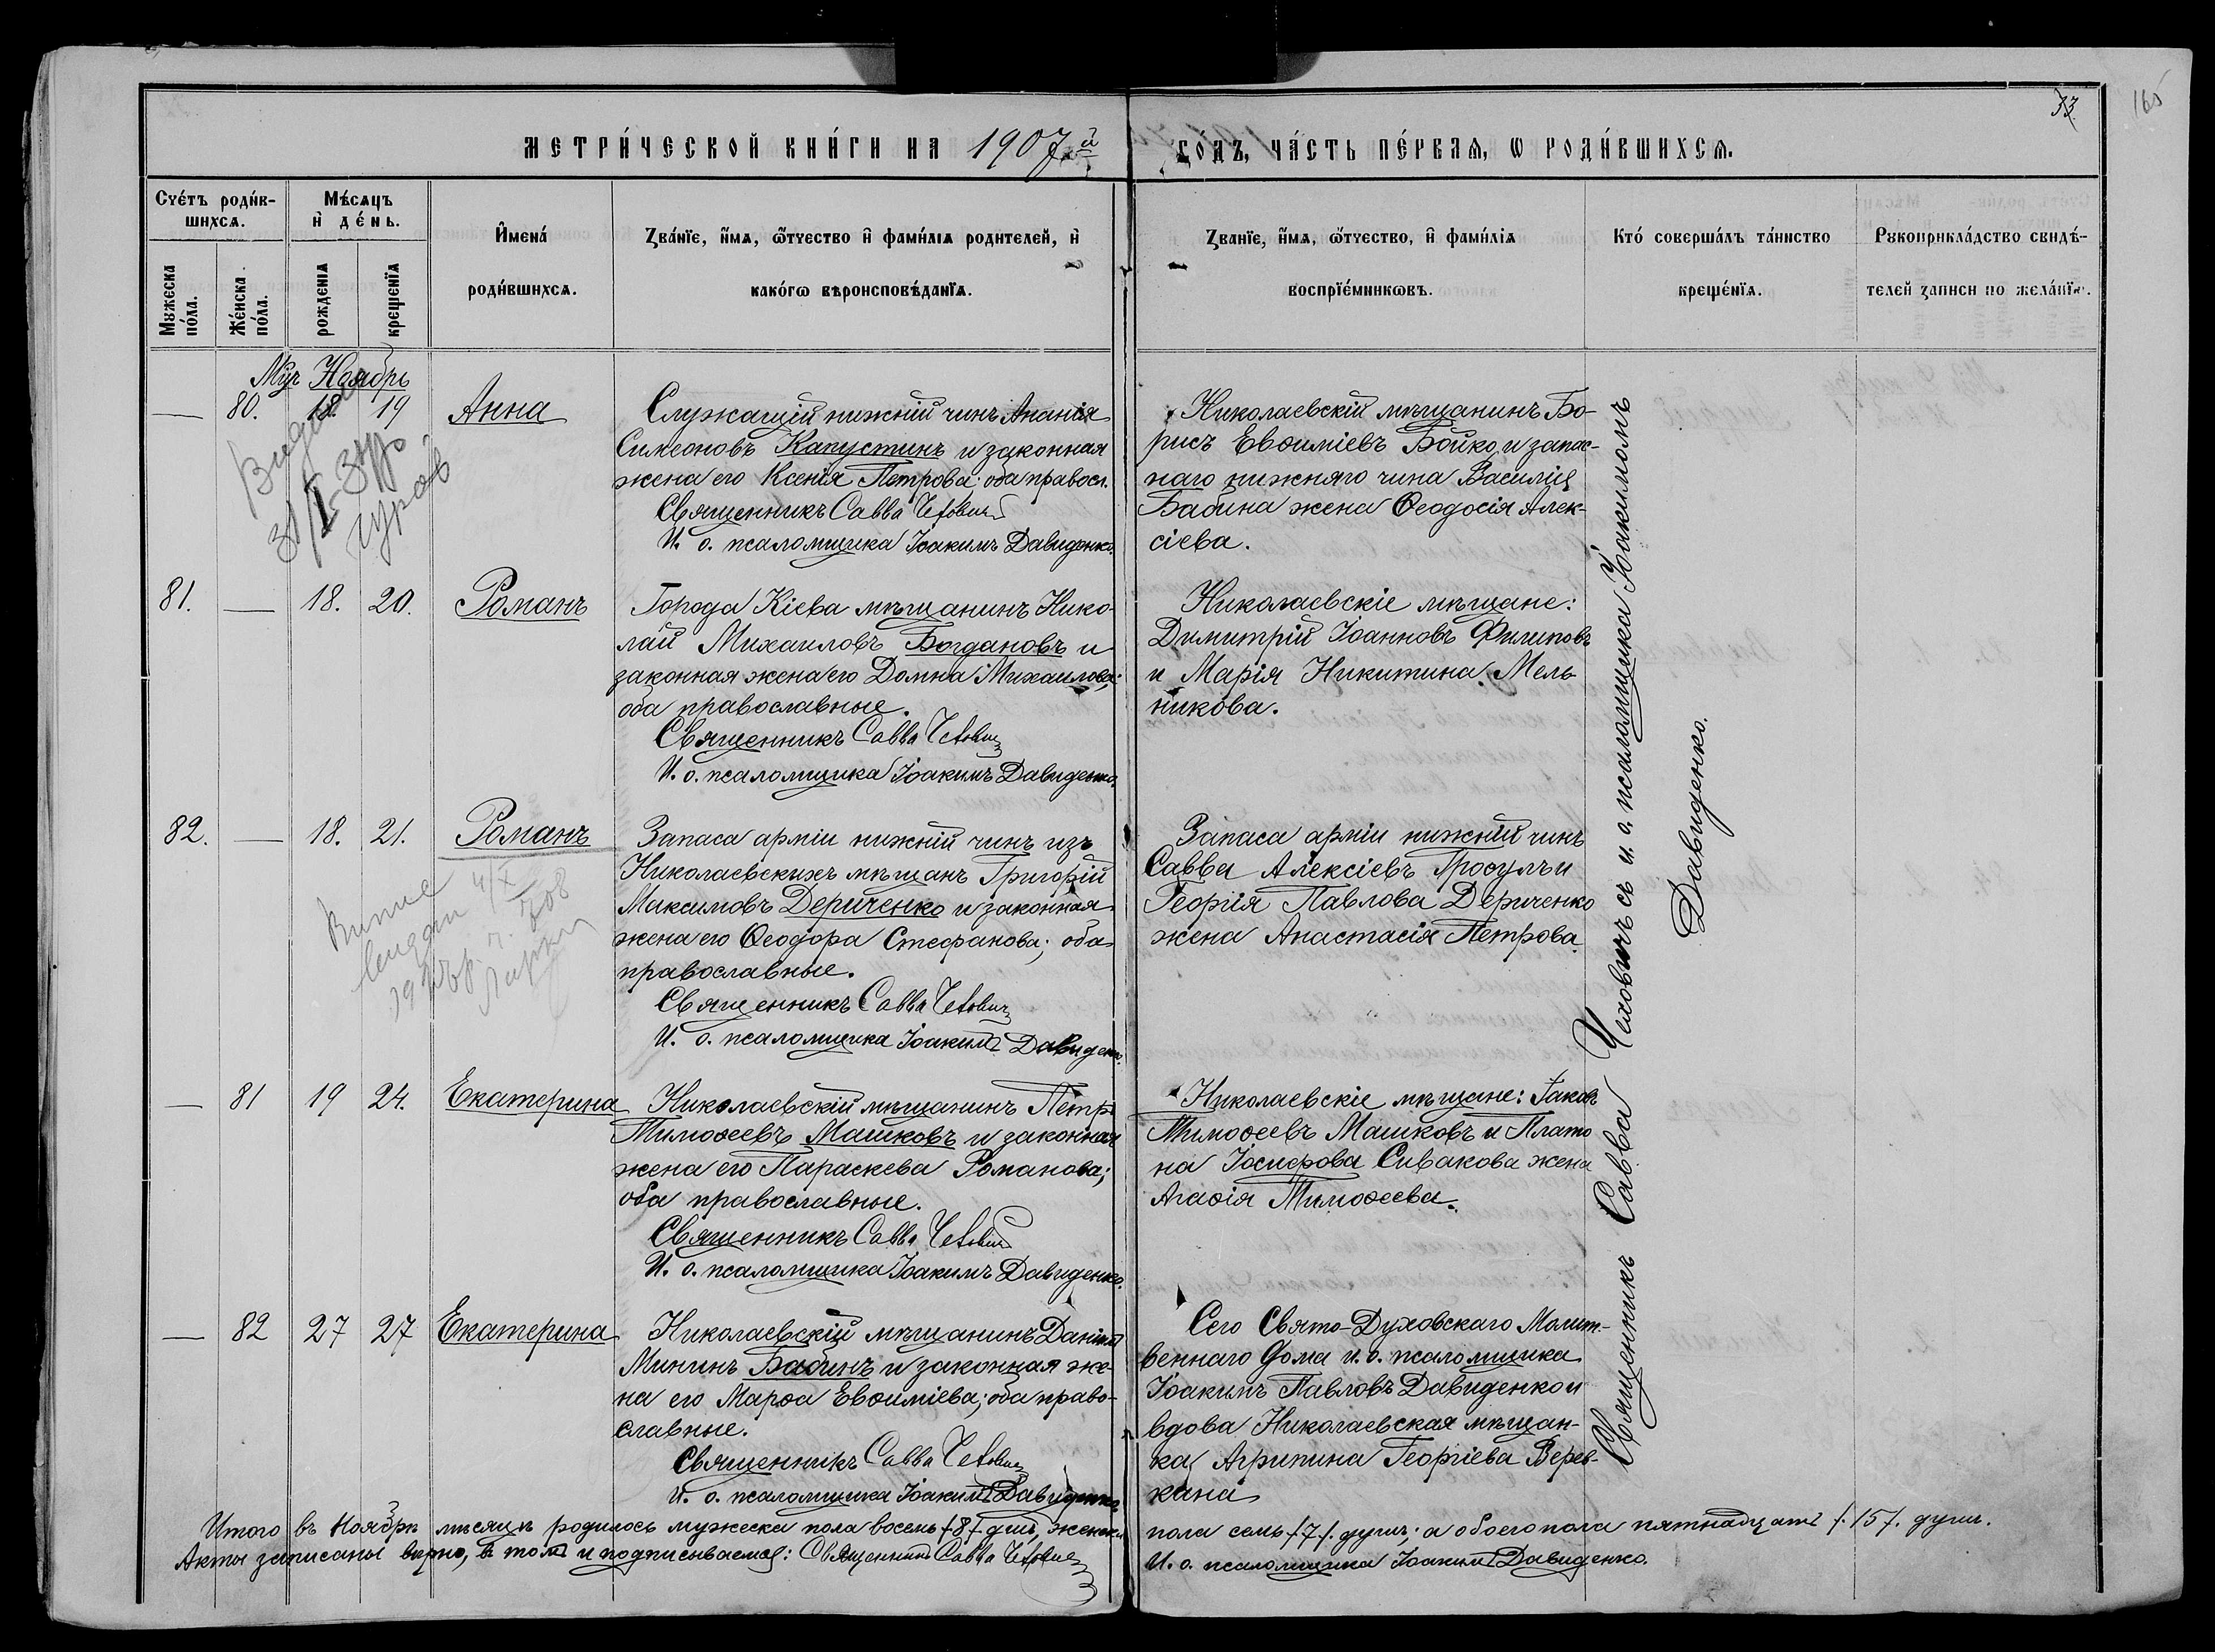 33
165
МЕТРИ́ЧЕСКОЙ КНИ́ГИ НА 1907й ГО́ДЪ, ЧА́СТЬ ПЕ́РВАѦ, Ѡ РОДИ́ВШИХСѦ.
Сче́тъ роди́в-
шихсѧ.
Мѣ́сѧцъ
и҆ де́нь.
Мꙋжеска
по́ла.
Же́нска
по́ла.
рожденїѧ
крещенїѧ
И҆мена́
роди́вшихсѧ.
Зва́нїе, и҆́мѧ, ѻ҆́тчество и҆ фами́лїѧ родителей, и҆
како́гѡ вѣроисповѣ́данїѧ.
Зва́нїе, и҆́мѧ, ѻ҆́тчество, и҆ фами́лїѧ
воспрїе́мникѡвъ.
Кто́ соверша́лъ та́инство
креще́нїѧ.
Рꙋкоприкла́дство свидѣ́-
телей записи по жела́нїю.
Мцъ Ноябрь
— 80. 18. 19 Анна
Служащій нижній чинъ Ананія
Симеоновъ Капустинъ и законная
жена его Ксенія Петрова; оба правосл.
Священникъ Савва Чехович
И. о. псаломщика Іоакимъ Давиденко.
Николаевскій мѣщанинъ Бо-
рисъ Евѳиміевъ Бойко и запас-
наго нижняго чина Василія
Бабина жена Ѳеодосія Алек-
сіева.
81. — 18. 20. Романъ
Города Кіева мѣщанинъ Нико-
лай Михаиловъ Богдановъ и
законная жена его Домна Михаилова;
оба православные.
Священникъ Савва Чехович
И. о. псаломщика Іоакимъ Давиденко.
Николаевскіе мѣщане:
Димитрій Іоанновъ Филиповъ
и Марія Никитина Мель-
никова.
82. — 18. 21. Романъ
Запаса арміи нижній чинъ изъ
Николаевскихъ мѣщанъ Григорій
Максимовъ Дериченко и законная
жена его Ѳеодора Стефанова; оба
православные.
Священникъ Савва Чехович
И. о. псаломщика Іоакимъ Давиденко.
Запаса арміи нижній чинъ
Савва Алексіевъ Просулъ и
Георгія Павлова Дериченко
жена Анастасія Петрова.
— 81 19 24. Екатерина
Николаевскій мѣщанинъ Петръ
Тимоѳеевъ Машковъ и законная
жена его Параскева Романова;
оба православные.
Священникъ Савва Чехович
И. о. псаломщика Іоакимъ Давиденко.
Николаевскіе мѣщане: Іаковъ
Тимоѳеевъ Машковъ и Плато
на Іосифова Сивакова жена
Агаѳія Тимоѳеева.
— 82 27 27 Екатерина
Николаевскій мѣщанинъ Даніилъ
Мининъ Бабинъ и законная же-
на его Марѳа Евѳиміева; оба право-
славные.
Священникъ Савва Чехович
И. о. псаломщика Іоакимъ Давиденко
Сего Свято-Духовскаго Молит-
веннаго Дома и. о. псаломщика
Іоакимъ Павловъ Давиденко и
вдова Николаевская мѣщан-
ка Агрипина Георгіева Верев-
кина
Священникъ Савва Чеховичъ съ и. о. псаломщика Іоакимомъ
Давиденко.
Итого въ Ноябрѣ мѣсяцѣ родилось мужеска пола восемь /8/ душ, женска пола семь /7/. душъ; а обоего пола пятнадцать /.15/. душъ.
Акты записаны вѣрно, въ томъ и подписываемся: Священникъ Савва Чехович
И. о. псаломщика Іоакимъ Давиденко.